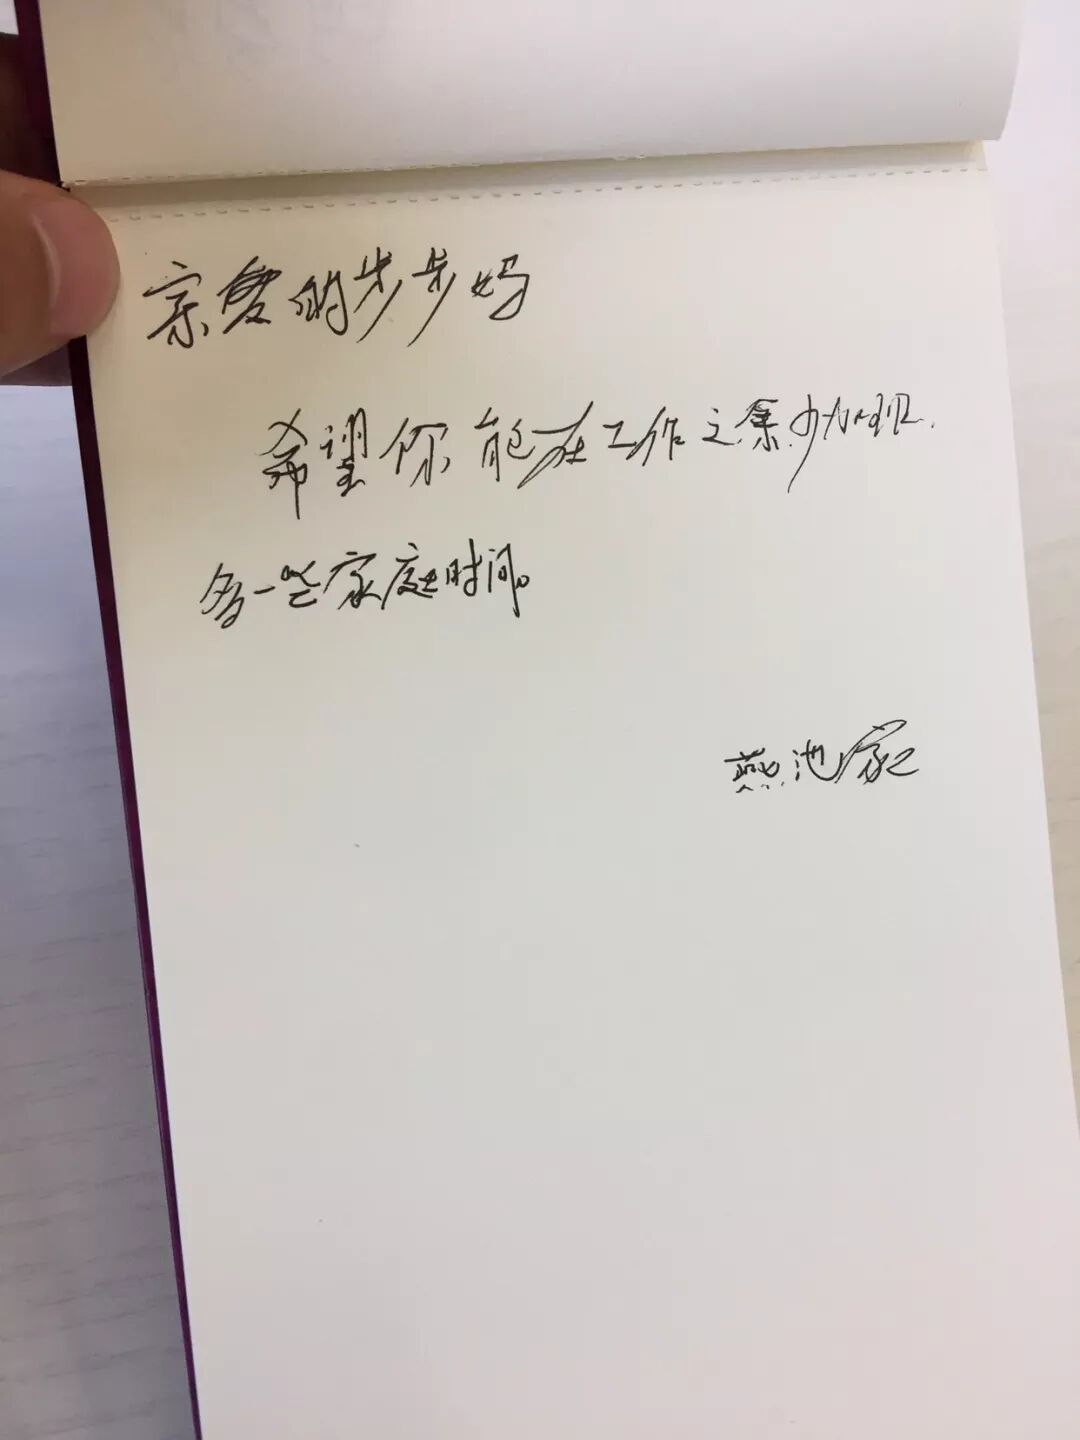 亲爱的步步妈
希望你能在工作之余少加班，
多一些家庭时间。
燕池家